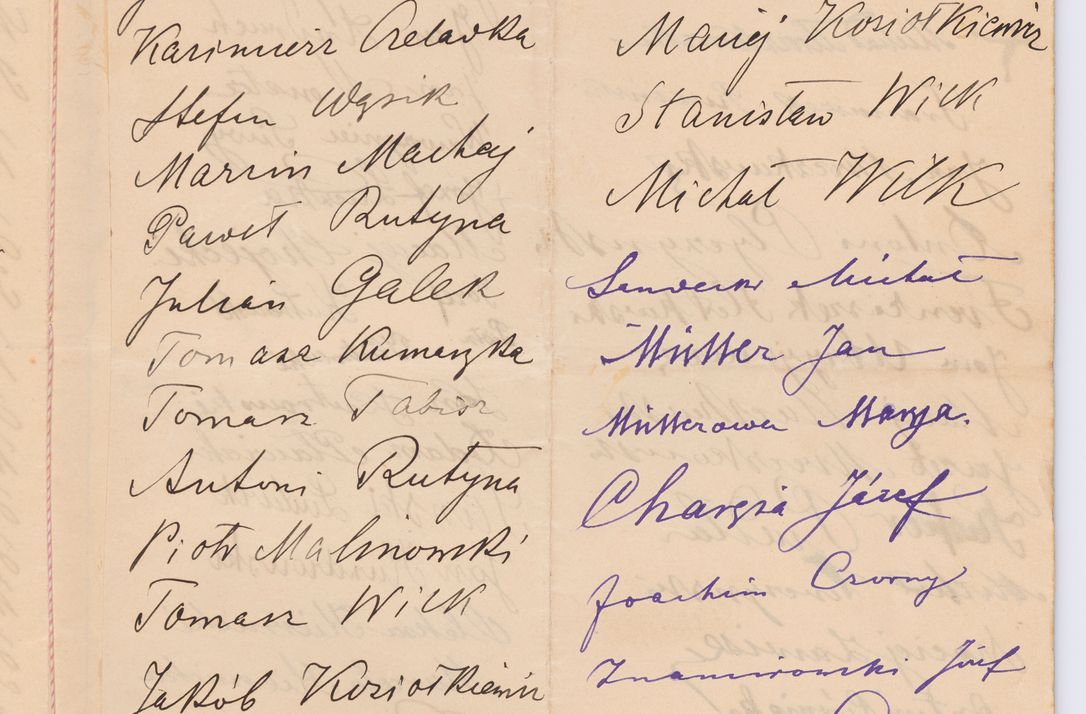 Kazimierz Czeladka
Stefan Wąsik
Marcin Maciej
Paweł Rutyna
Julian Galek
Tomasz Kumaszka
Tomasz Tabisz
Antoni Rutyna
Piotr Malinowski
Tomasz Wilk
Jakób Koziołkiewicz
Maciej Koziołkiewicz
Stanisław Wilk
Michał Wilk
Michał
Müller Jan
Müllerowa Marya.
Józef
Joachim Czvorny
Znamirowski Józef